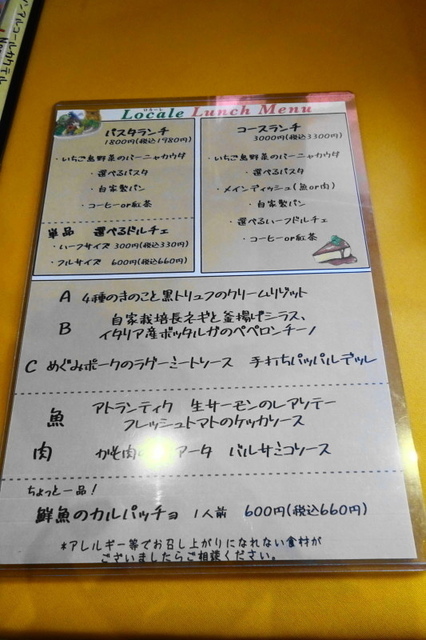 ノンアルコールカクテル
Locale Lunch Menu
パスタランチ
1800円(税込1980円)
・いちご島野菜のバーニャカウダ
・選べるパスタ
・自家製パン
・コーヒーor紅茶
単品 選べるドルチェ
・ハーフサイズ 300円(税込330)
・フルサイズ 600円(税込660)
コースランチ
3000円(税込3300円)
・いちご島野菜のバーニャカウダ
・選べるパスタ
・メインディッシュ(魚or肉)
・自家製パン
・選べるハーフドルチェ
・コーヒーor紅茶
A 4種のきのこと黒トリュフのクリームリゾット
B 自家栽培長ネギと釜揚げシラス、
イタリア産ボッタルガのペペロンチーノ
C めぐみポークのラグーミートソース 手打ちパッパルデッレ
魚 アトランティク 生サーモンのレアソテー
フレッシュトマトのケッカソース
肉 かも肉の アータ バルサミコソース
ちょっと一品!
鮮魚のカルパッチョ 1人前 600円(税込660円)
*アレルギー等でお召し上がりになれない食材が
ございましたらご相談ください。